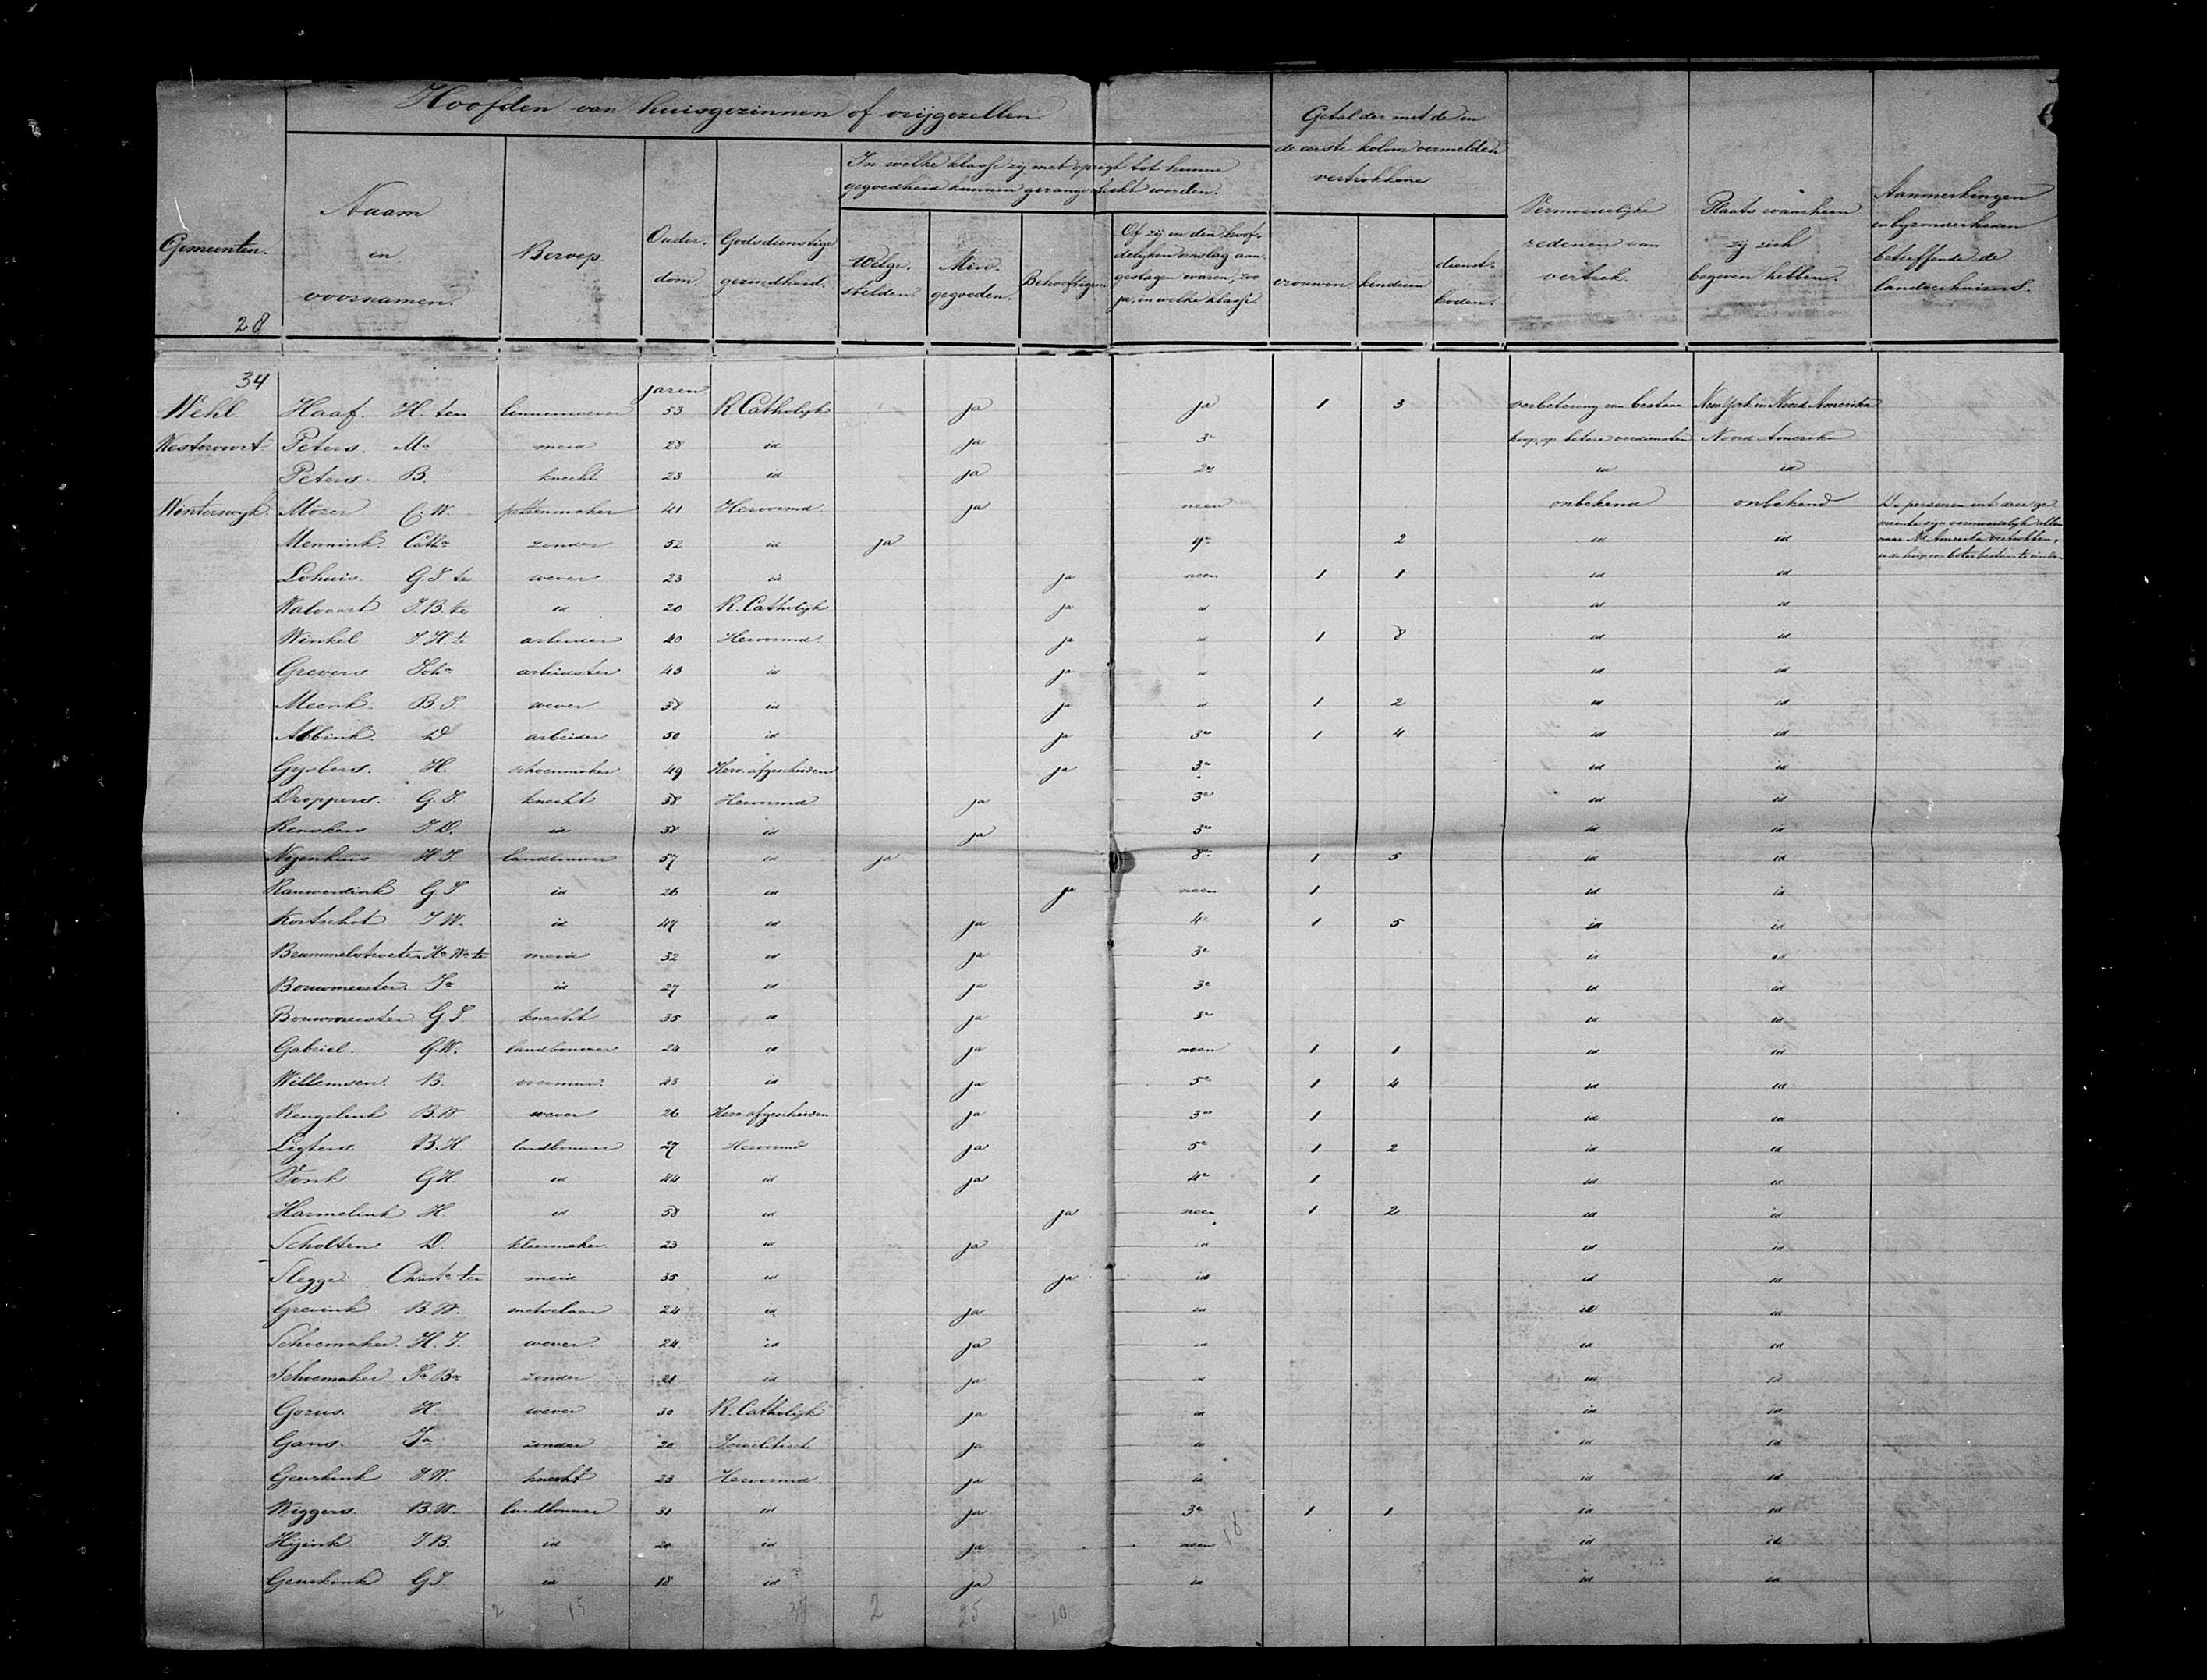 Hoofden van huisgezinnen of vrijgezellen.
Getal der met de in
de eerste kolom vermelden
vertrokkene
In welke klasse zij met opzigt tot hunne
gegoedheid kunnen gerangschikt worden.
Gemeenten.
Naam
en
voornamen.
Beroep.
Ouder-
dom.
Godsdienstige
gezindheid.
Welge-
stelden.
Min-
gegoeden.
Behoeftigen.
Of zij in den hoof-
delijken omslag aan-
geslagen waren, zoo
ja, in welke klasse.
vrouwen. kinderen dienst-
boden.
Vermoedelijke
redenen van
vertrek.
Plaats waarheen
zij zich
begeven hebben.
Aanmerkingen
en byzonderheden
betreffende de
landverhuizers.
28
34
jaren
Wehl Haaf. H. ten linnenwever 53 R Catholyk ja ja 1 3 verbetering van bestaan New York in Noord Amerika
Westervoort Peters. Ma meid 28 id ja 3e hoop op betere verdiensten Noord Amerika
Peters. B. knecht 23 id ja 2e id id
Winterswyk. Mözer C. W. pettenmaker 41 Hervormd ja neen onbekend onbekend De personen uit deze ge
meente zyn vermoedelyk allen
naar Nd Amerika vertrokken,
Mennink. Catha zonder 52 id ja 9e 2 id id
Lohuis. G. J. te wever 23 id ja neen 1 1 id id
Walvaart J. B. te id 20 R. Catholyk ja id id id
Winkel J. H. te arbeider 40 Hervormd ja id 1 8 id id
Grevers Joha arbeidster 43 id ja id id id
Meenk. B. J. wever 38 id ja id 1 2 id id
Abbink. D arbeider 50 id ja 3e 1 4 id id
Gysbers. H. schoenmaker 49 Herv. afgescheiden ja 3e id id
Droppers. G. J. knecht 38 Hervormd ja 3e id id
Renskers J. D. id 38 id ja 3e id id
Nyenhuis H J. landbouwer 57 id ja 8e 1 5 id id
Rauwerdink G. J id 26 id ja neen 1 id id
Kortschot J W. id 47 id ja 4e 1 5 id id
Brummelstroete. Ha Wa te meid 32 id ja 3e id id
Bouwmeester. Ja id 27 id ja 3e id id
Bouwmeester G. J. knecht 35 id ja 3e id id
Gabriel. G. W. landbouwer 24 id ja neen 1 1 id id
Willemsen. B. voerman. 43 id ja 5e 1 4 id id
Rengelink B. W. wever 26 Herv. afgescheiden ja 3e 1 id id
Ligters. B. H. landbouwer 27 Hervormd ja 5e 1 2 id id
Vonk G H id 44 id ja 4e 1 id id
Harmelink H. id 58 id ja neen 1 2 id id
Scholten D. kleermaker 23 id ja id id id
Slegge. Christa ter meid 35 id ja id id id
Grevink B. W. metselaar 24 id ja id id id
Schoemaker. H. J. wever 24 id ja id id id
Schoemaker Ja Ba zonder 21 id ja id id id
Gozus. H. wever 30 R. Catholyk ja id id id
Gans. Ja zonder 20 Israëlitisch ja id id id
Geurkink J. W. knecht 23 Hervormd ja id id id
Wiggers. B. W. landbouwer 31 id ja 3e 1 1 id id
Hyink J B. id 20 id ja neen id id
18
Geurkink G J. id 18 id ja id id id
2 15 38 2 25 10